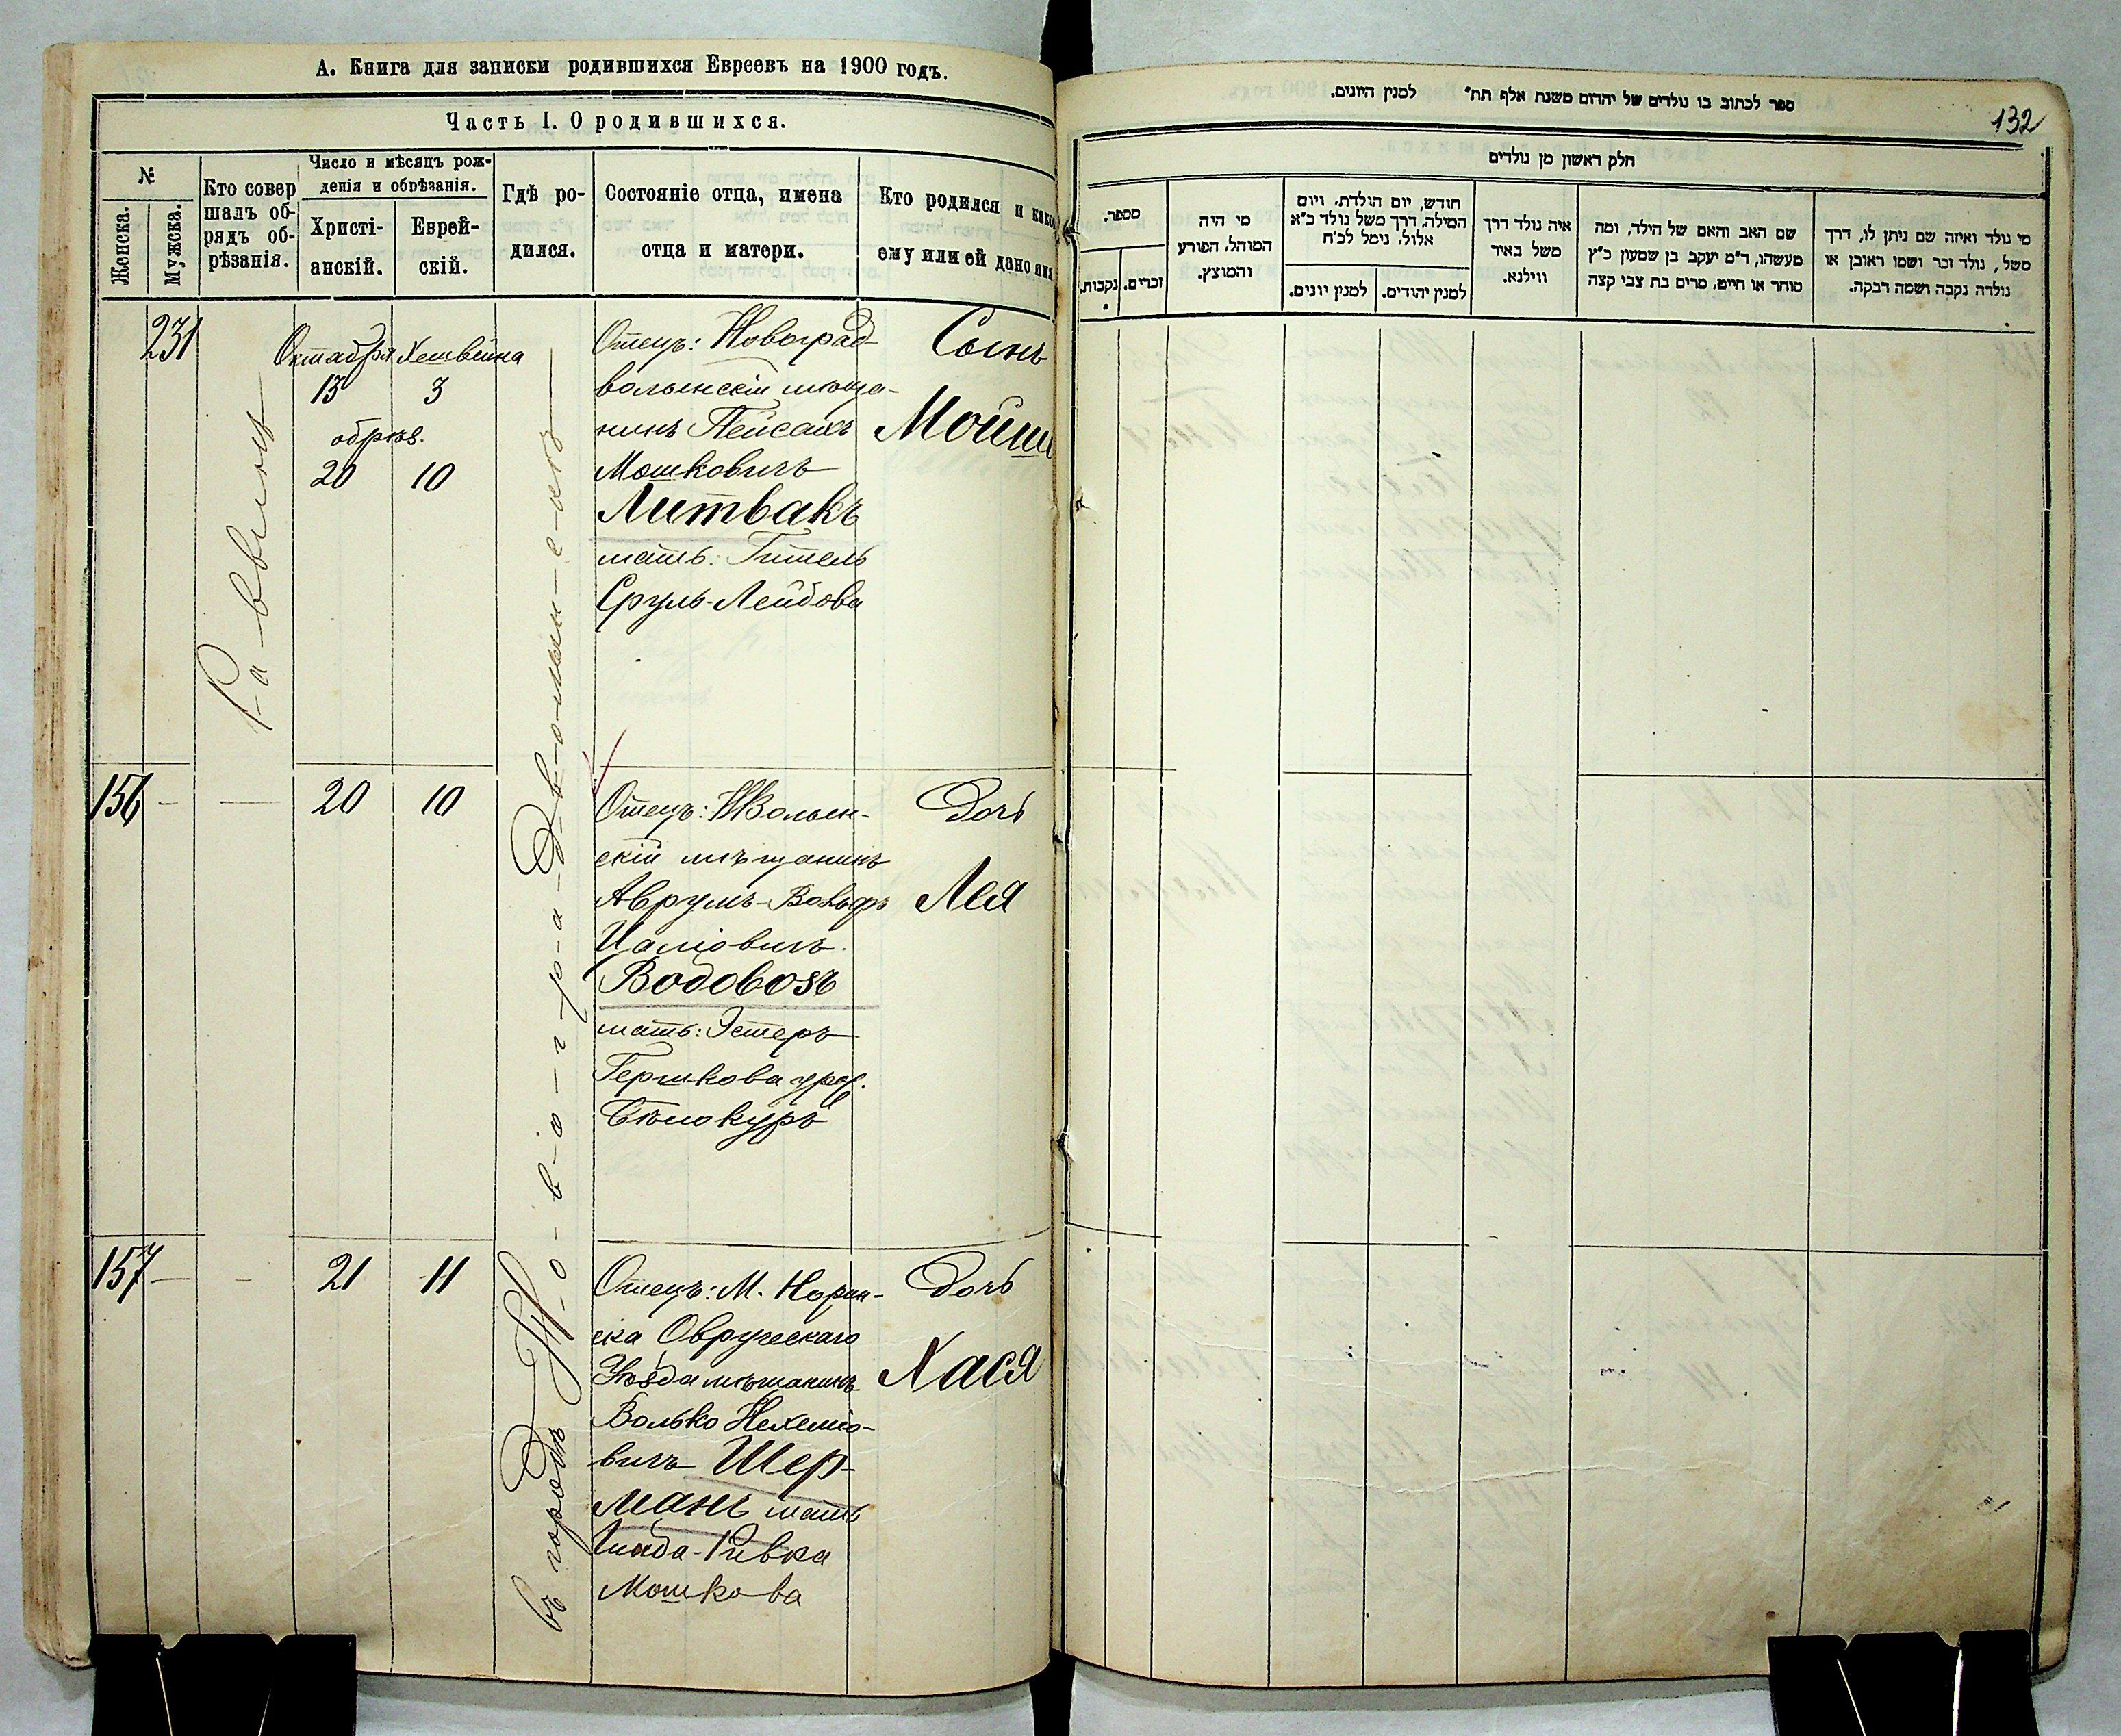 А. Книга для записки родившихся Евреевъ на 1900 годъ.
Часть I. О родившихся.
№
Женска.
Мужска.
Кто совер
шалъ об-
рядъ об-
рѣзанія.
Число и мѣсяцъ рож-
денія и обрѣзанія.
Христі-
анскій.
Еврей-
скій.
Гдѣ ро-
дился.
Состояніе отца, имена
отца и матери.
Кто родился и како
ему или ей дано имя
231
Раввинъ
Октября Хешвина
13 3
обрѣз.
20 10
въ городѣ Новіоградволынскѣ
Отецъ: Новоград
волынскій мѣща-
нинъ Пейсахъ
Мошковичъ
Литвакъ
мать: Гитель
Сруль-Лейбова
Сынъ
Мойше
156 - — 20 10
Отецъ: НВолын-
скій мѣщанинъ
Аврумъ-Вольфъ
Цаліовичъ
Водовозъ
мать: Эстеръ
Гершкова урж.
Бѣлокуръ
Дочь
Лея
157 — - 21 11
Отецъ: М. Норин-
ска Овручскаго
Уѣзда мѣщанинъ
Волько Нехеміо-
вичъ Шер-
манъ мать
Ривка
Мошкова
Дочь
Хася
ספר לכתוב בו נולדים של יהדים משנת אלף תת״ למנין היונים.
132
חלק ראשון מן נולדים
מספר.
נקבות.
זכרים.
מי היה
המוהל, הפורע
והמוצץ.
חודש, יום הולדת, ויום
המילה, דרך משל נולד כ״א
אלול, נימל לכ״ח
למנין יונים.
למנין יהודים.
איה נולד דרך
משל באיר
ווילנא.
שם האב והאם של הילד, ומה
מעשהו, ד״מ יעקב בן שמעון כ״ץ
סוחר או חייט, מרים בת צבי קצה
מי נולד ואיזה שם ניתן לו, דרך
משל, נולד זכר ושמו ראובן או
נולדה נקבה ושמה רבקה.